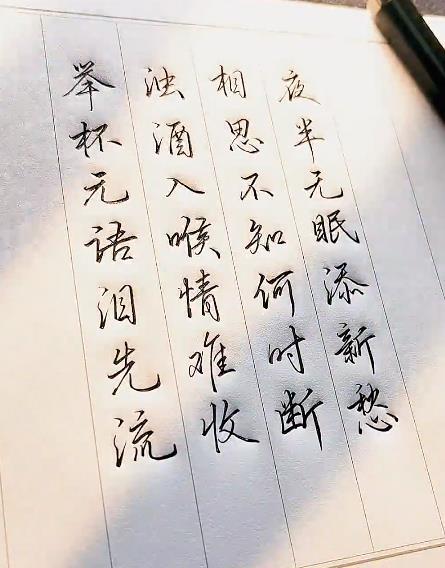 夜半无眠添新愁
相思不知何时断
浊酒入喉情难收
举杯无语泪先流